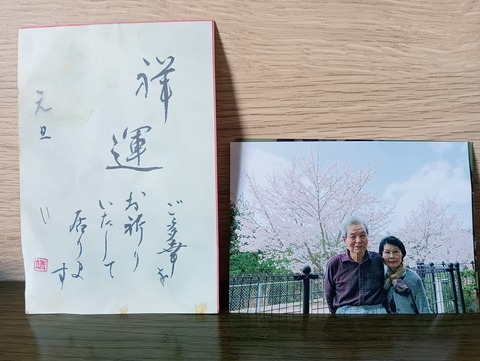 祥
運
ご多幸を
お祈り
いたして
居ります
元旦